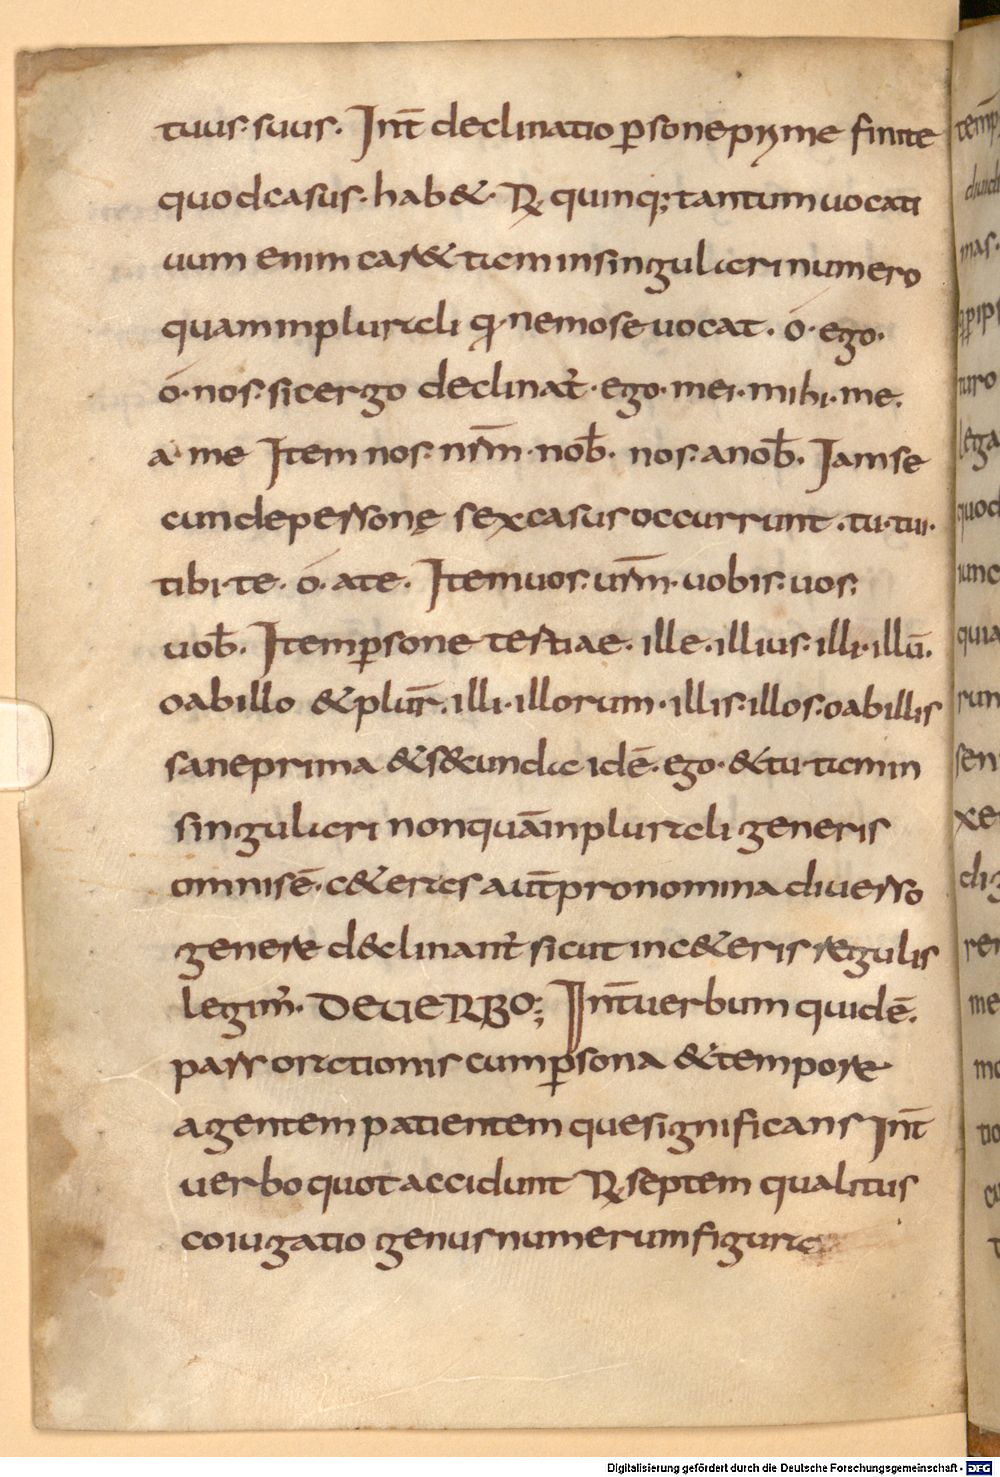 tuus· suus· Int̄ declinatio ꝑsone pryme finite
quod casus· hab&· R̷ quinq; tantum uocati
uum enim car& tam in singulari numero
quam in plurali q nemo se uocat· ó· ego·
ó· nos· sic ergo declinat̉· ego· mei· mihi· me·
a· me Item nos· nr̄m· nob̄· nos· a nob̄· Iam se
cunde personę sex casus occurrunt· tu· tui·
tibi· te· ó· a te· Item uos· ur̄m· uobis· uos·
uob̄· Item ꝑsone tertiae· ille· illius· illi· illū·
o ab illo & plur̄· illi· illorum· illis· illos· o ab illis
sane prima & s&cunda idē· ego· & tu· tam in
singulari non quā in plurali generis
omnis ē· c&eras aut̄ pronomina diuerso
genere declinant̉ sicut in c&eris regulis
legim̉· DE UERBO; Int̄ uerbum quid ē·
pars orationis cum ꝑsona & tempore
agentem patientem que significans Int̄
uerbo quot accidunt R̷ septem qualitas
coiugatio genus numerum figura